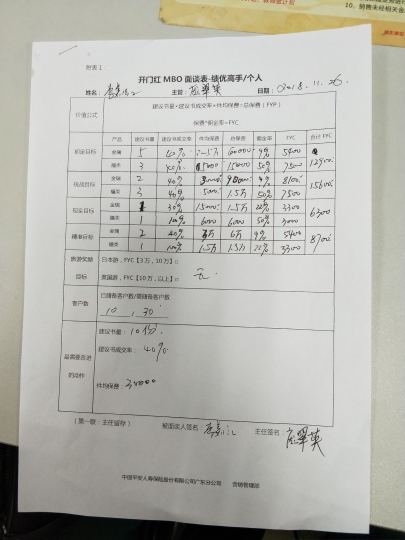 10、销售未经相关金
附表1
开门红 MBO 面谈表-绩优高手/个人
姓名: 主管: 翠英 日期: 2018.11.26
价值公式 建议书量*建议书成交率*件均保费=总保费(FYP)
保费*佣金率=FYC
产品 建议书量 建议书成交率 件均保费 总保费 佣金率 FYC 合计 FYC
目标 金瑞 5 60000 9% 5400
福类 3 15000 50% 7500 12900
挑战目标 金瑞 2 40% 9% 8100
福类 3 5000 1.5万 50% 7500 15600
目标 金瑞 1 30% 15000 1.5万 22% 3300
福类 1 100% 6000 6000 50% 3000 6300
目标 金瑞 2 40% 3万 6万 9% 5400
福类 1 100% 1.5万 1.5万 22% 3300 8700
旅游奖励 日本游,FYC【3万,10万】□
目标 美国游,FYC【10万,以上】□ 无
客户数 已储备客户数/需储备客户数
10 , 30
最需要改进
的动作
建议书量: 10份.
建议书成交率: 40%
件均保费: 30000
(第一联:主任留存) 被面谈人签名: 主任签名: 翠英
中国平安人寿保险股份有限公司广东分公司 营销管理部